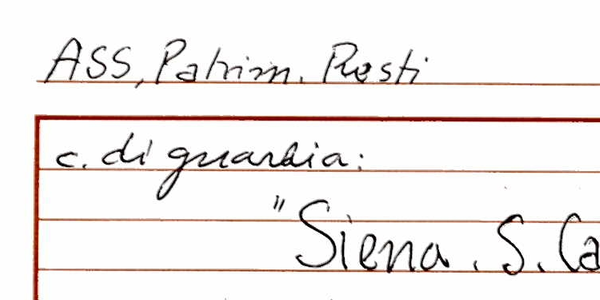 ASS, Patrim. Resti
c. di guardia:
"Siena. S. Ca